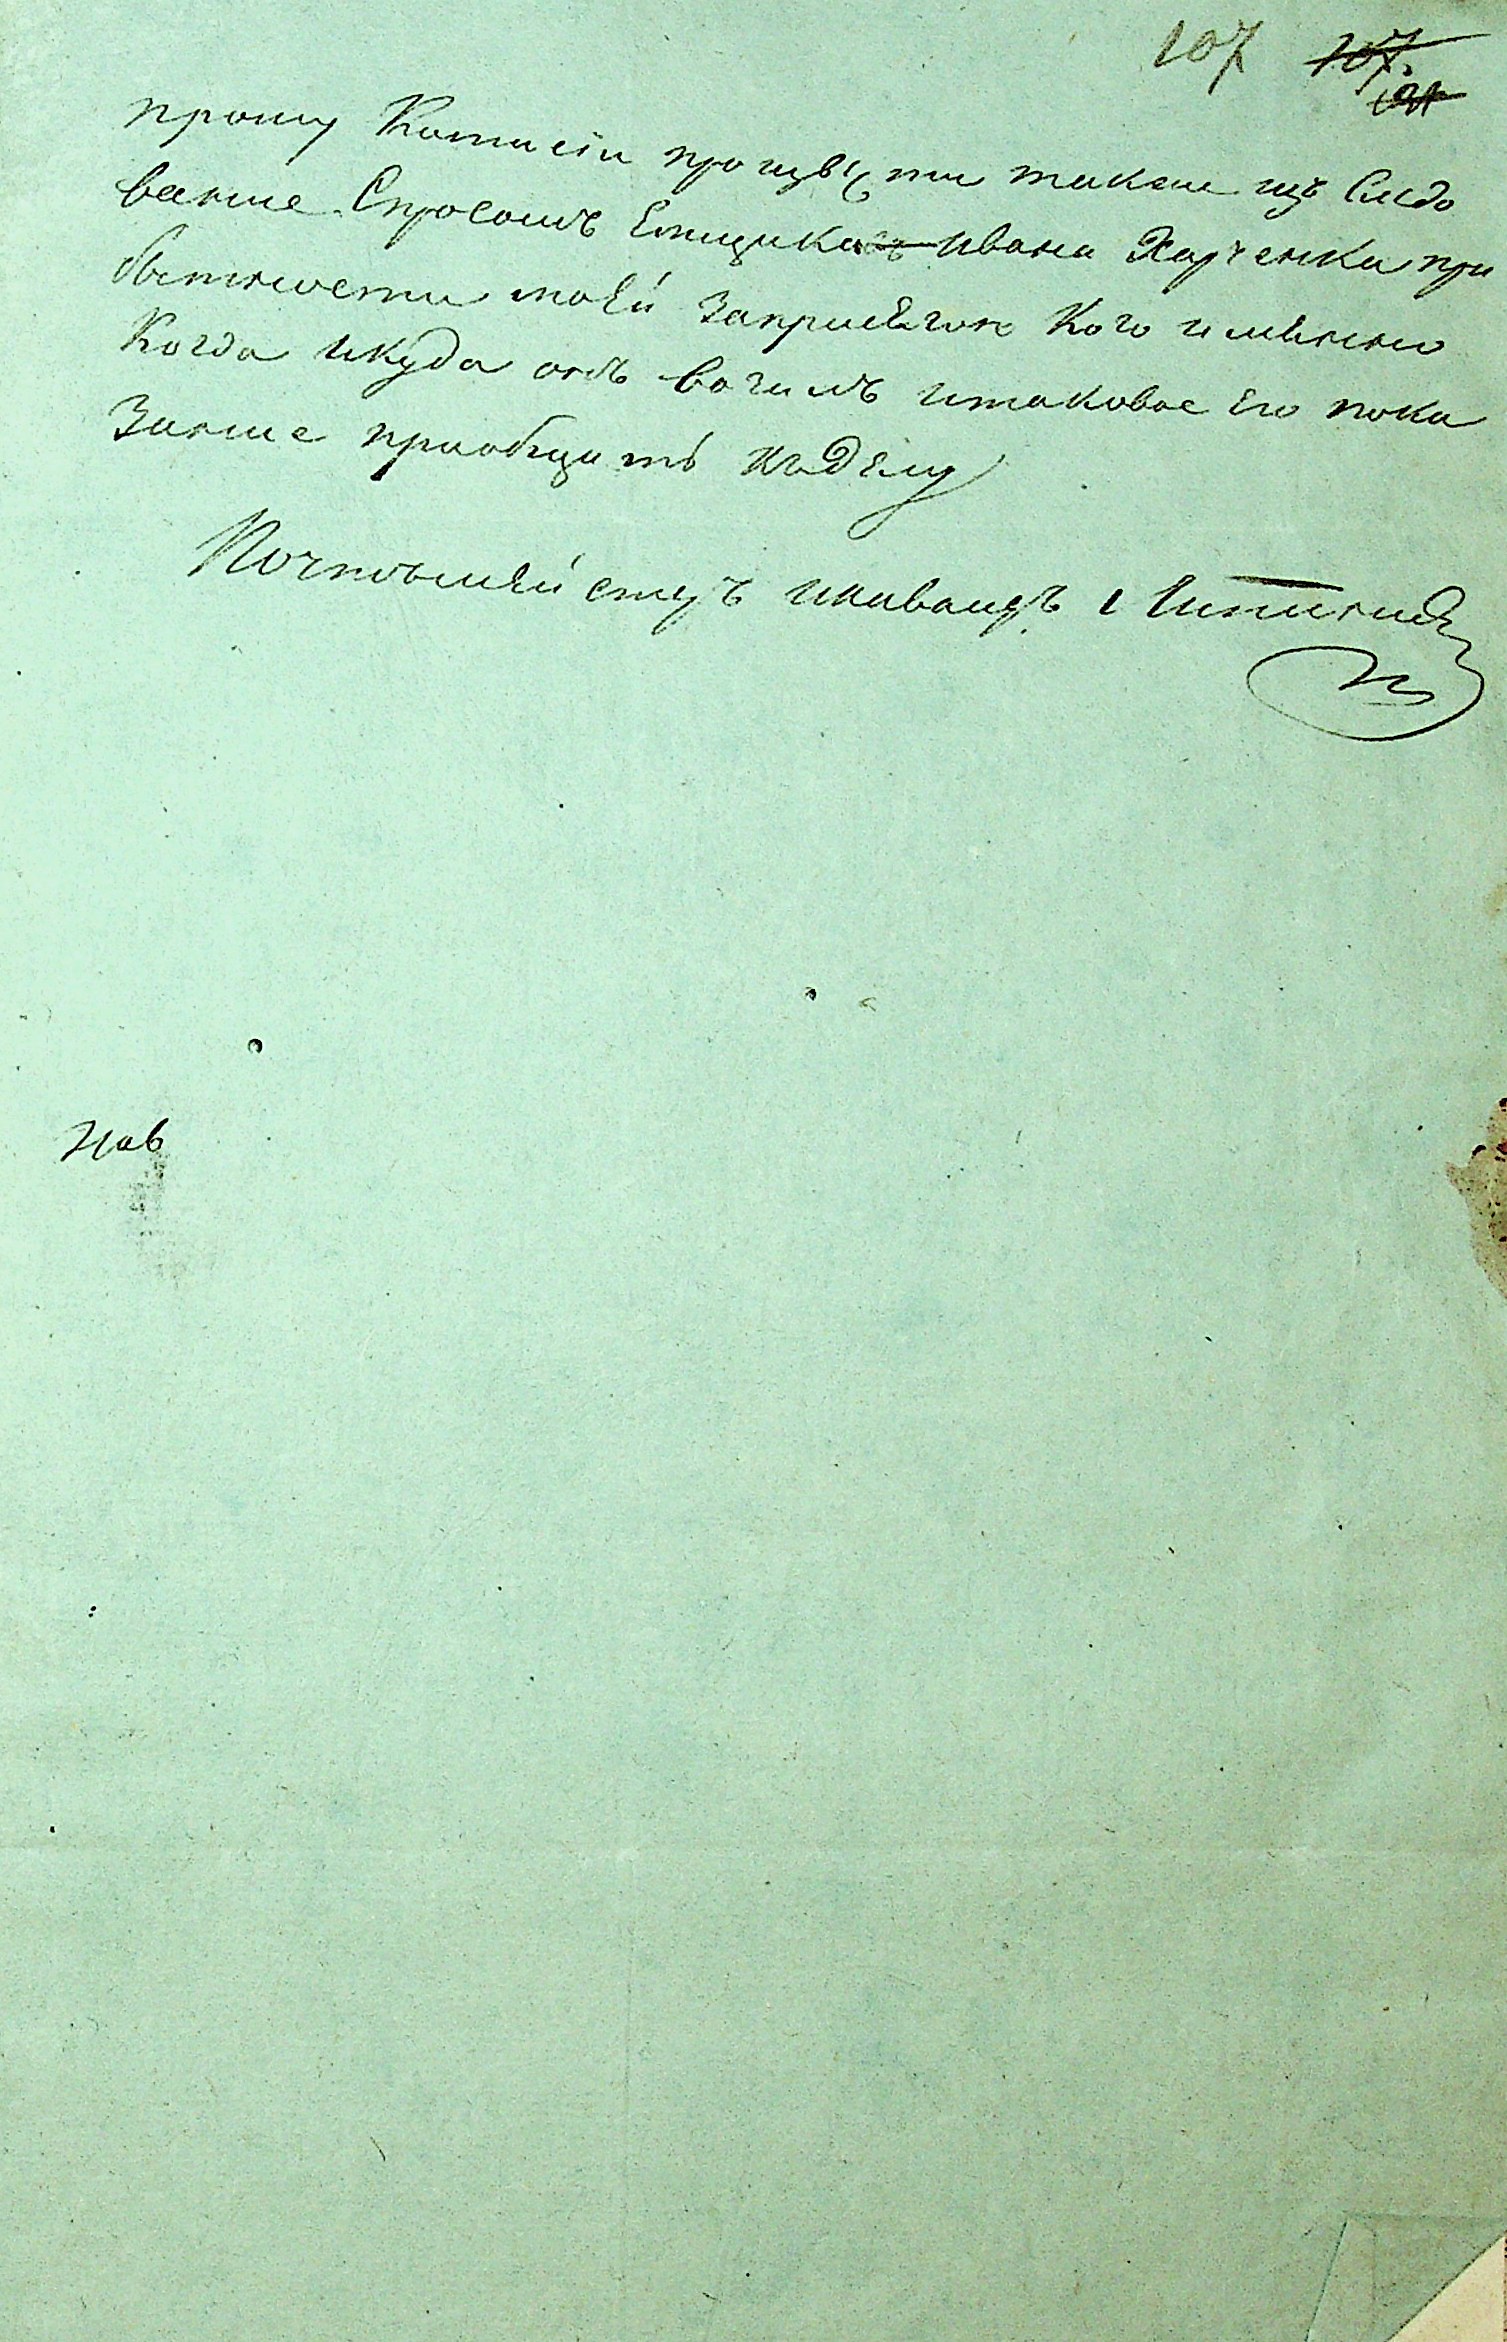 107 107.
прошу Комисіи произвести также изъ Следо
вание Спросомъ Емщика Ивана Харченка при
бытности моей Заприсягою Кого именно
Когда икуда онъ возилъ итаковое Его пока
Зание приобщить къделу
Почтмейстръ